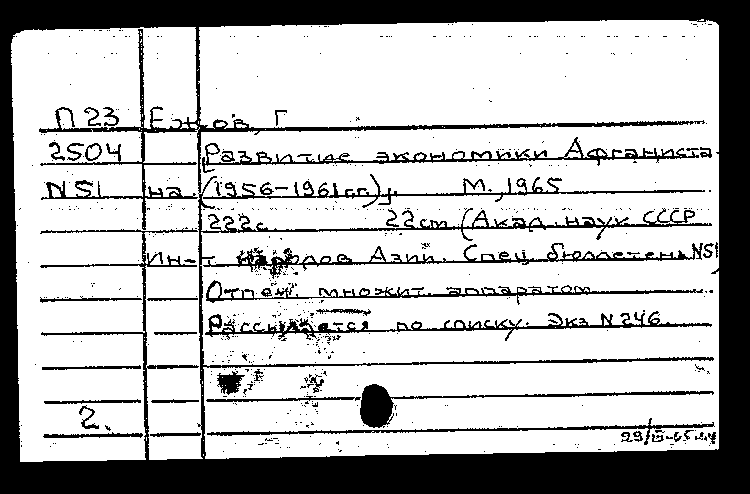 П 23 Ежов, Г
2504 [Развитие экономики Афганиста-
N51 на (1956-1961гг.)]. М., 1965
222с 22cm (Акад. наук СССР
Ин-т народов Азии. Спец. бюллетень N51)
Отпеч. множит. аппаратом
Рассылается по списку. Экз N 246.
2.
29/III-65